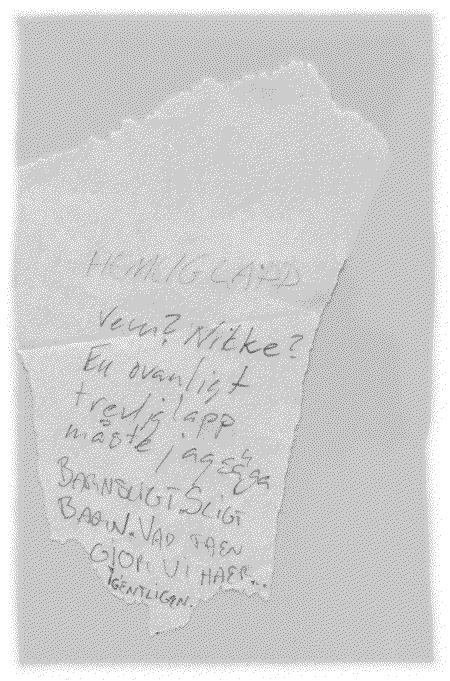 HEMLIG LAPP
Vem? Nikke?
En ovanligt
trevlig lapp
måste jag säga
BARNSLIGT SLIGT
BARN. VAD
GJOR VI HAER...
IGENTLIGEN.